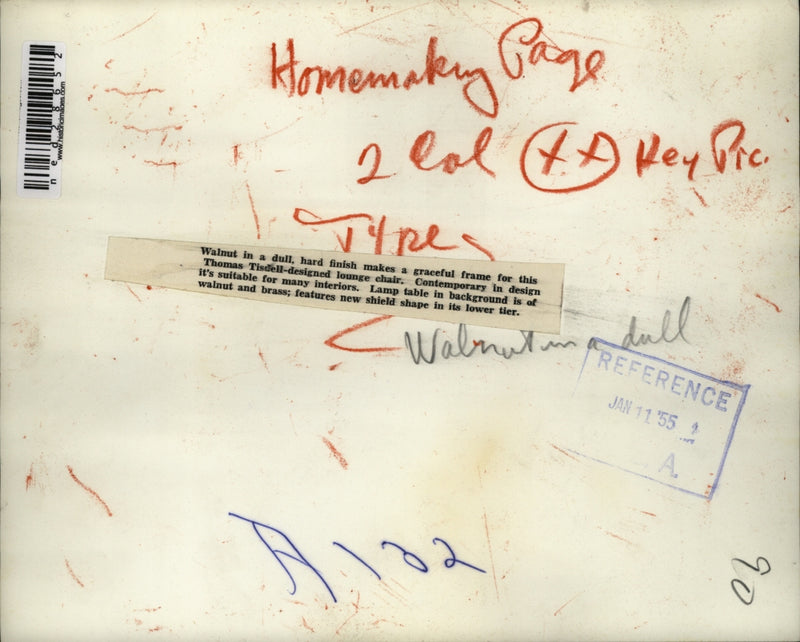 Homemaking Page
2 Col XX Key Pic.
Type
Walnut in a dull, hard finish makes a graceful frame for this
Thomas Tisdell-designed lounge chair. Contemporary in design
it's suitable for many interiors. Lamp table in background is of
walnut and brass; features new shield shape in its lower tier.
Walnut in a dull
REFERENCE
JAN 11 '55
A
A 132
90
ned28652
www.historicimages.com